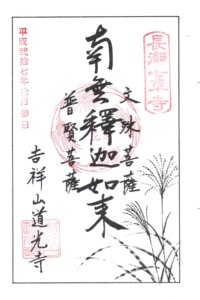 長瀞七草寺
文殊菩薩
南無釋迦如来
普賢菩薩
平成弐拾七年
吉祥山道光寺